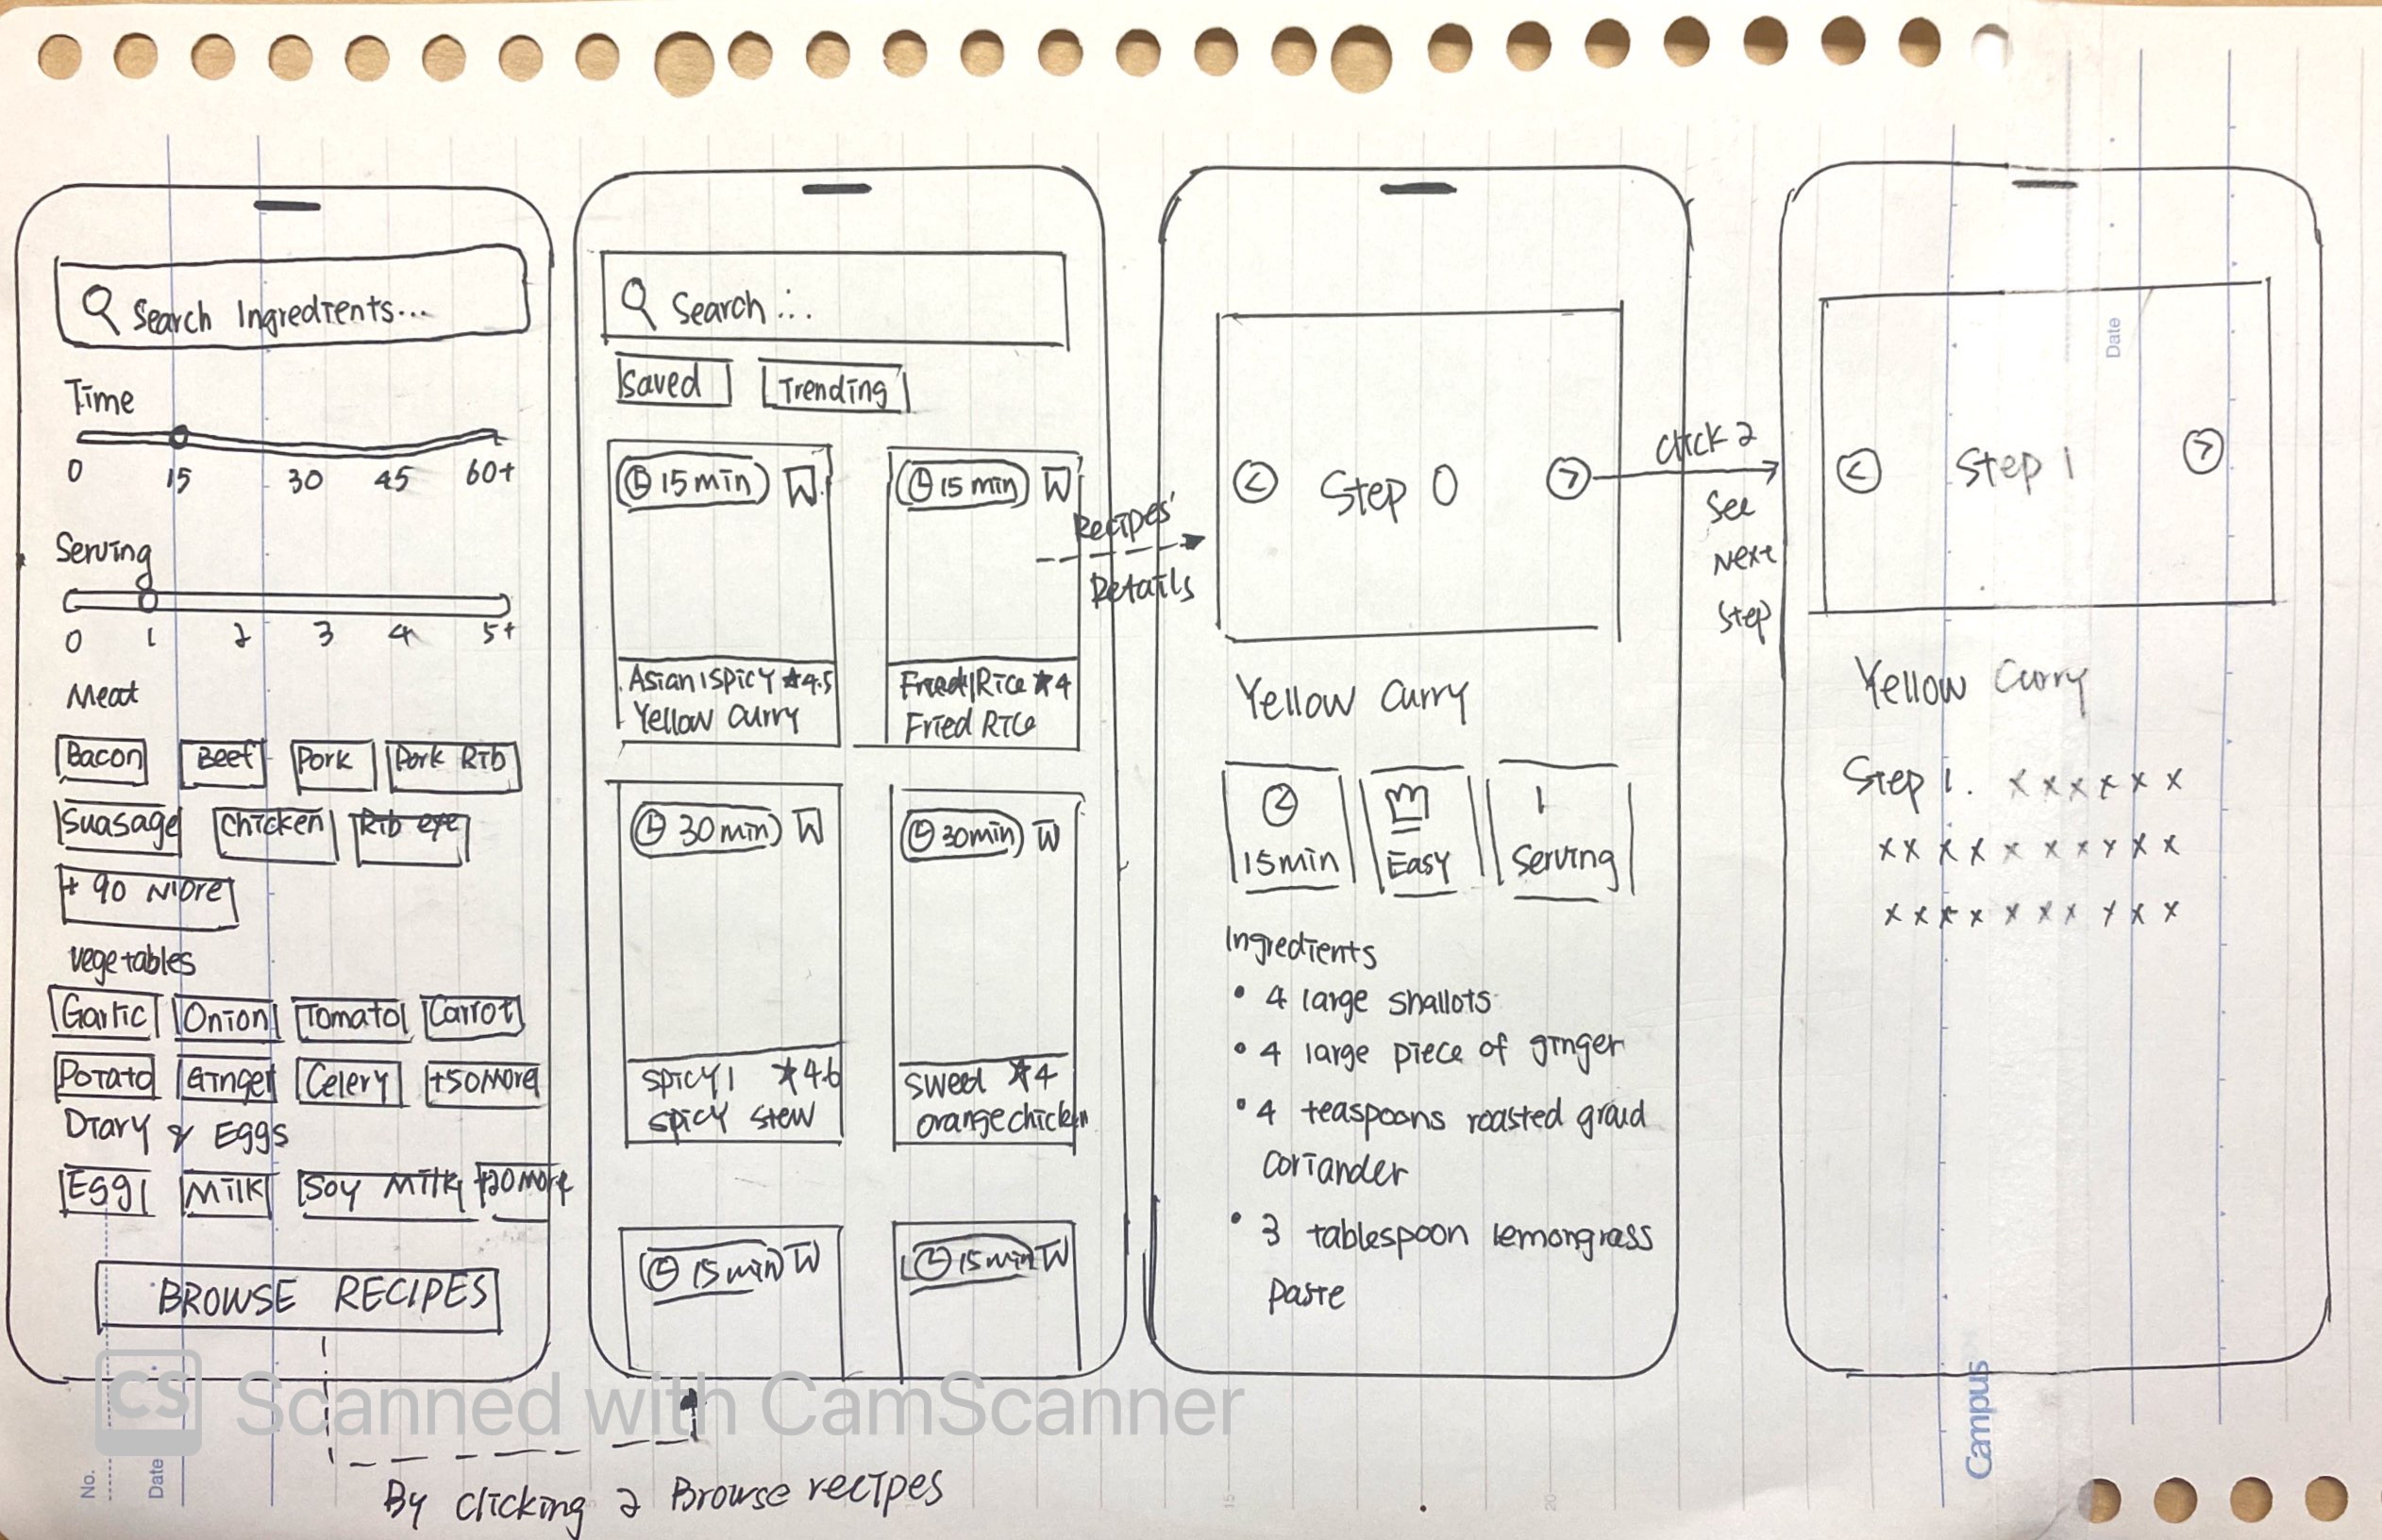 Search Ingredients...
Time
0 15 30 45 60+
Serving
0 1 2 3 4 5+
Meat
Bacon Beef Pork Pork Rib
Suasage Chicken Rib eye
+ 90 More
Vegetables
Garlic Onion Tomato Carrot
Potato Ginger Celery +50 More
Diary & Eggs
Egg Milk Soy Milk +20 More
BROWSE RECIPES
By clicking 2 Browse recipes
Search ...
Saved Trending
15 min 15 min
Asian | Spicy ★4.5 Fried | Rice ★4
Yellow Curry Fried Rice
30 min 30 min
Spicy | ★4.6 Sweet ★4
Spicy Stew orange chicken
15 min 15 min
Recipes'
Details
< Step 0 >
Yellow Curry
15 min Easy 1 Serving
Ingredients
• 4 large shallots
• 4 large piece of ginger
• 4 teaspoons roasted
coriander
• 3 tablespoon lemongrass
paste
Click 2
See
Next
Step
< Step 1 >
Yellow Curry
Step 1. x x x x x x
x x x x x x x x x x
x x x x x x x x x x
Date
Campus
No.
Date
15
20
CS Scanned with CamScanner